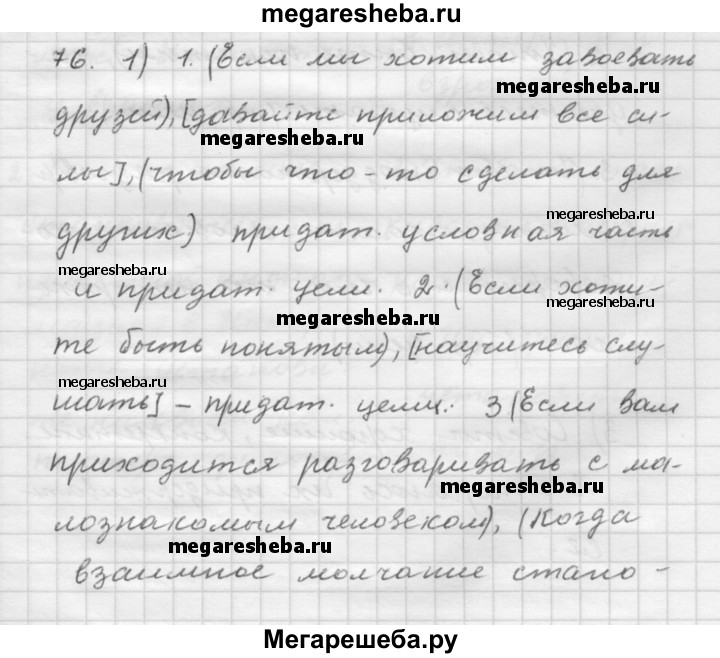 megaresheba.ru
76. 1) 1. (Если мы хотим завоевать
megaresheba.ru
друзей), [давайте приложим все си-
megaresheba.ru
лы], (чтобы что-то сделать для
megaresheba.ru
других) придат. условная часть
megaresheba.ru
и придат. цели. 2. (Если хоти-
megaresheba.ru
megaresheba.ru
те быть понятым), [научитесь слу-
megaresheba.ru
шать] – придат. цели. 3 (Если вам
приходится разговаривать с ма-
megaresheba.ru
лознакомым человеком), (Когда
megaresheba.ru
взаимное молчание стано-
Мегарешеба.ру